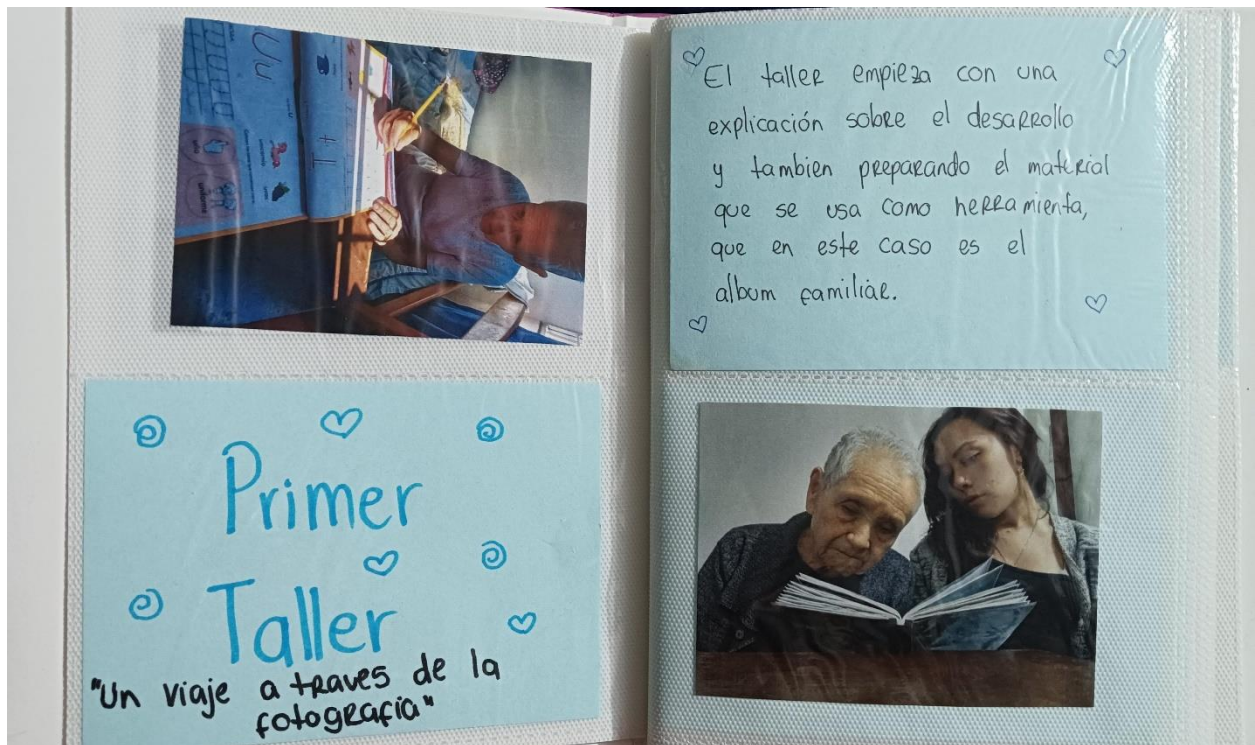 Uu
T t
uniforme
Primer
Taller
"Un viaje a traves de la
fotografia"
El taller empieza con una
explicación sobre el desarrollo
y tambien preparando el material
que se usa como herramienta,
que en este caso es el
album familiar.